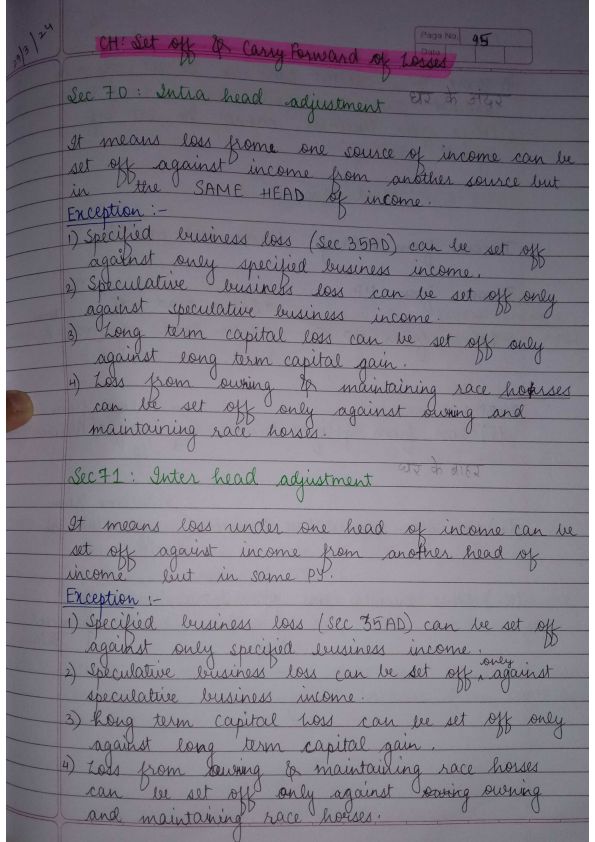 29/3/24
Page No. 95
Date
CH: Set off & Carry Forward of Losses
Sec 70 : Intra head adjustment घर के अंदर
It means loss frome one source of income can be
set off against income from another source but
in the SAME HEAD of income.
Exception :-
1) Specified business loss (Sec 35AD) can be set off
against only specified business income.
2) Speculative business loss can be set off only
against speculative business income.
3) Long term capital loss can be set off only
against long term capital gain.
4) Loss from owning & maintaining race horses
can be set off only against owning and
maintaining race horses.
Sec 71 : Inter head adjustment घर के बाहर
It means loss under one head of income can be
set off against income from another head of
income but in same PY.
Exception :-
1) Specified business loss (Sec 35AD) can be set off
against only specified business income.
2) Speculative business loss can be set off only against
speculative business income.
3) Long term capital Loss can be set off only
against long term capital gain.
4) Loss from owning & maintaining race horses
can be set off only against owning
and maintaining race horses.